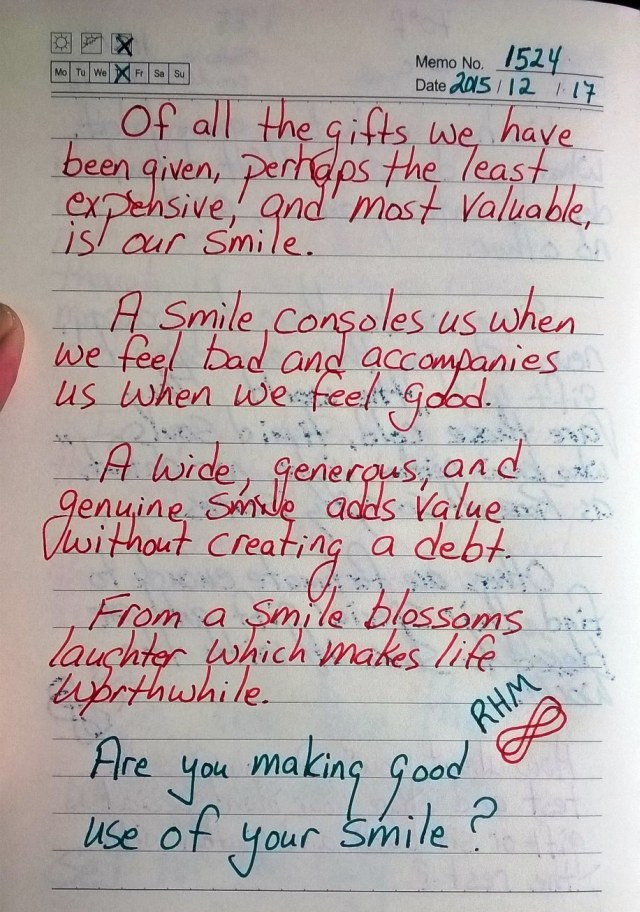 Memo No. 1524
Mo Tu We Fr Sa Su
Date 2015 / 12 / 17
Of all the gifts we have
been given, perhaps the least
expensive, and most valuable,
is our smile.
A smile consoles us when
we feel bad and accompanies
us when we feel good.
A wide, generous, and
genuine smile adds value
without creating a debt.
From a smile blossoms
laughter which makes life
worthwhile.
RHM
Are you making good
use of your smile?